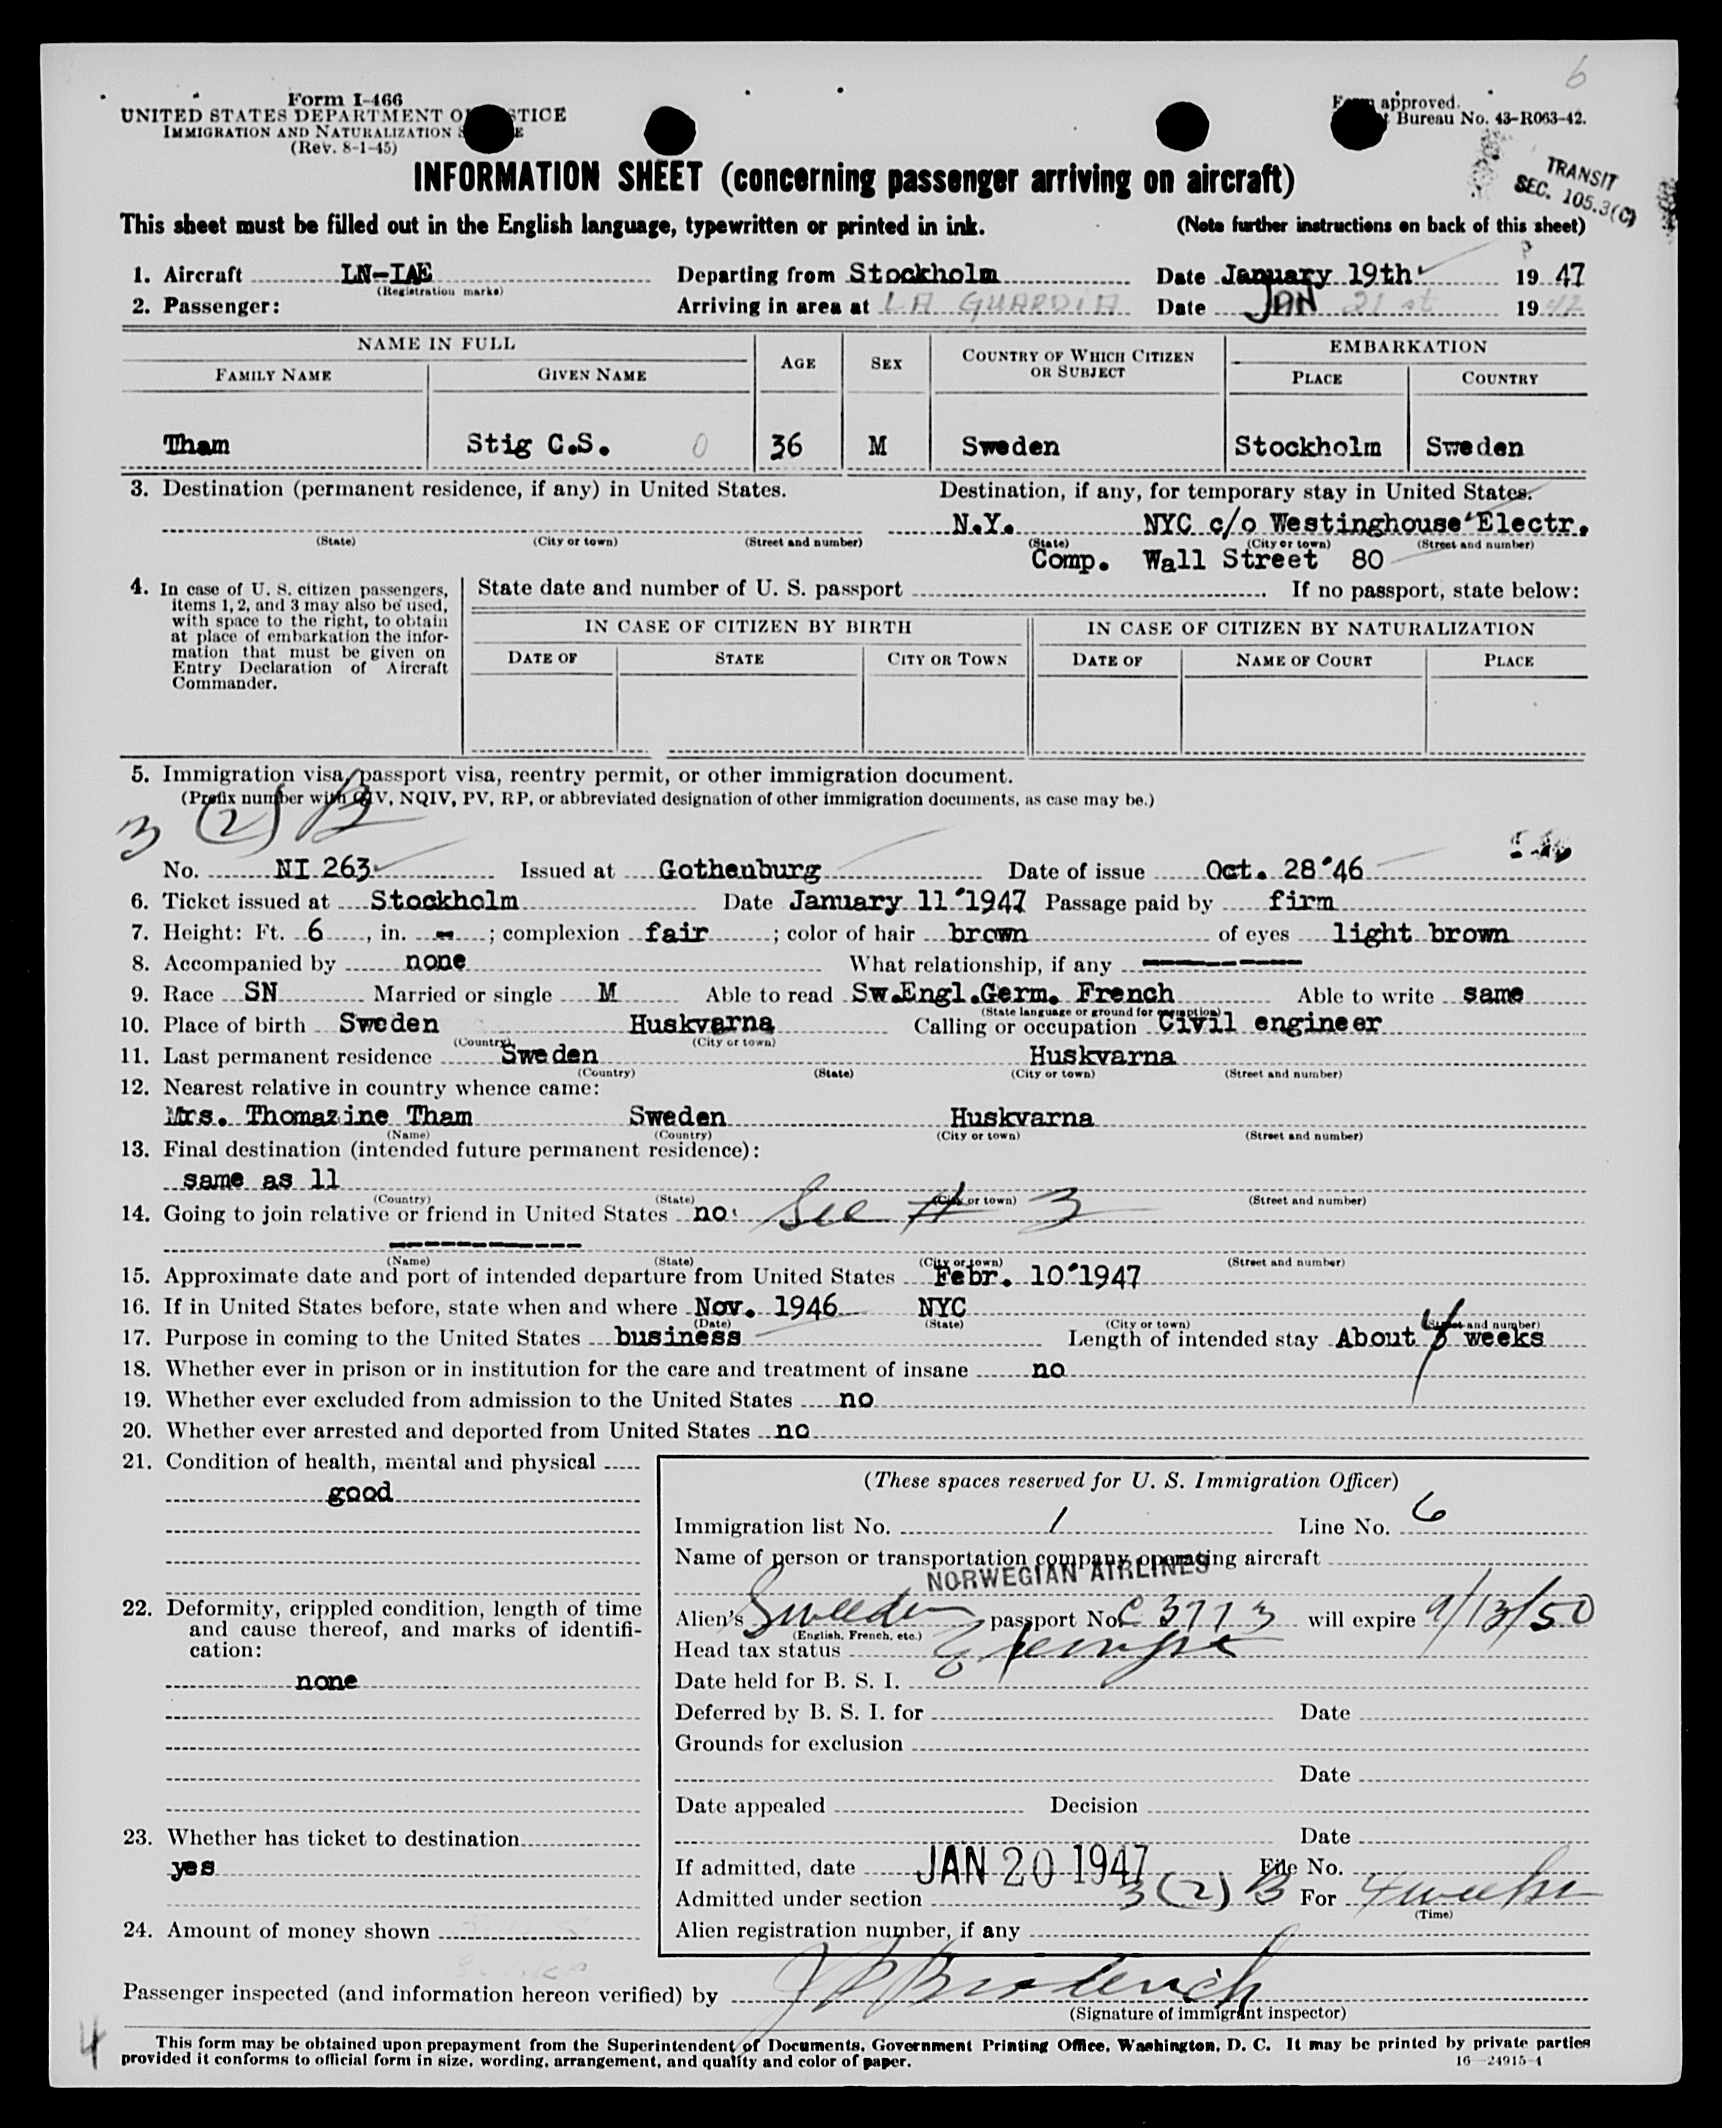 6
Form I-466
UNITED STATES DEPARTMENT OF JUSTICE
IMMIGRATION AND NATURALIZATION
(Rev. 8-1-45)
Form approved.
Bureau No. 43-R063-42.
TRANSIT
SEC. 105.3(C)
INFORMATION SHEET (concerning passenger arriving on aircraft)
This sheet must be filled out in the English language, typewritten or printed in ink. (Note further instructions on back of this sheet)
1. Aircraft LN-IAE Departing from Stockholm Date January 19th 19 47
(Registration marks)
2. Passenger: Arriving in area at LA GUARDIA Date JAN 21 st 19
NAME IN FULL AGE SEX COUNTRY OF WHICH CITIZEN OR SUBJECT EMBARKATION
FAMILY NAME GIVEN NAME PLACE COUNTRY
Tham Stig C.S. 0 36 M Sweden Stockholm Sweden
3. Destination (permanent residence, if any) in United States. Destination, if any, for temporary stay in United States.
N.Y. NYC c/o Westinghouse Electr.
(State) (City or town) (Street and number) (State) (City or town) (Street and number)
Comp. Wall Street 80
4. In case of U. S. citizen passengers,
items 1, 2, and 3 may also be used,
with space to the right, to obtain
at place of embarkation the infor-
mation that must be given on
Entry Declaration of Aircraft
Commander.
State date and number of U. S. passport If no passport, state below:
IN CASE OF CITIZEN BY BIRTH IN CASE OF CITIZEN BY NATURALIZATION
DATE OF STATE CITY OR TOWN DATE OF NAME OF COURT PLACE
5. Immigration visa, passport visa, reentry permit, or other immigration document.
(Prefix number with QIV, NQIV, PV, RP, or abbreviated designation of other immigration documents, as case may be.)
3 (2) B
No. NI 263 Issued at Gothenburg Date of issue Oct. 28 '46
6. Ticket issued at Stockholm Date January 11 '1947 Passage paid by firm
7. Height: Ft. 6, in. -; complexion fair; color of hair brown of eyes light brown
8. Accompanied by none What relationship, if any ----------
9. Race SN Married or single M Able to read Sw.Engl.Germ. French Able to write same
(State language or ground for exemption)
10. Place of birth Sweden Huskvarna Calling or occupation Civil engineer
(Country) (City or town)
11. Last permanent residence Sweden Huskvarna
(Country) (State) (City or town) (Street and number)
12. Nearest relative in country whence came:
Mrs. Thomazine Tham Sweden Huskvarna
(Name) (Country) (City or town) (Street and number)
13. Final destination (intended future permanent residence):
same as 11
(Country) (State) (City or town) (Street and number)
14. Going to join relative or friend in United States no See # 3
------------
(Name) (State) (City or town) (Street and number)
15. Approximate date and port of intended departure from United States Febr. 10 '1947
16. If in United States before, state when and where Nov. 1946 NYC
(Date) (State) (City or town) (Street and number)
17. Purpose in coming to the United States business Length of intended stay About 4 weeks
18. Whether ever in prison or in institution for the care and treatment of insane no
19. Whether ever excluded from admission to the United States no
20. Whether ever arrested and deported from United States no
21. Condition of health, mental and physical
good
22. Deformity, crippled condition, length of time
and cause thereof, and marks of identifi-
cation:
none
23. Whether has ticket to destination
yes
24. Amount of money shown
(These spaces reserved for U. S. Immigration Officer)
Immigration list No. 1 Line No. 6
Name of person or transportation company operating aircraft
NORWEGIAN AIRLINES
Alien's Sweden passport No. C 3773 will expire 9/13/50
(English, French, etc.)
Head tax status Exempt
Date held for B. S. I.
Deferred by B. S. I. for Date
Grounds for exclusion
Date
Date appealed Decision
Date
If admitted, date JAN 20 1947 File No.
Admitted under section 3 (2) B For 4 weeks
(Time)
Alien registration number, if any
Passenger inspected (and information hereon verified) by
(Signature of immigrant inspector)
4
This form may be obtained upon prepayment from the Superintendent of Documents, Government Printing Office, Washington, D. C. It may be printed by private parties
provided it conforms to official form in size, wording, arrangement, and quality and color of paper.
16—24915-1